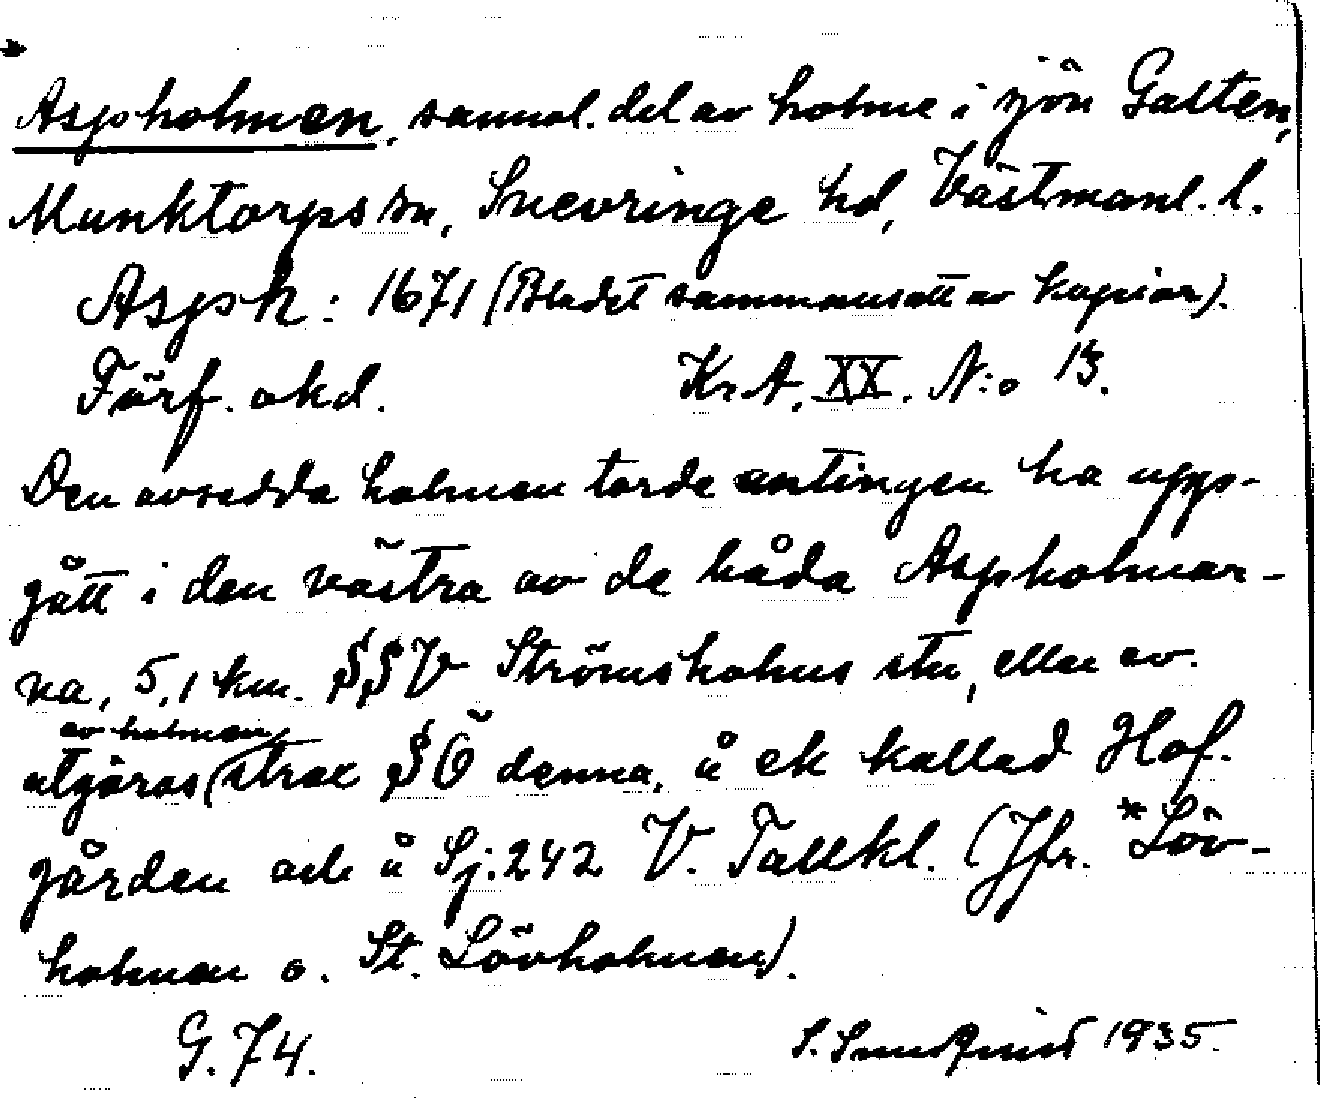 Aspholmen, sannol. del av holme i sjön Galten,
Munktorps sn, Snevringe hd, Västmanl. l.
Asph: 1671 (Bladet sammansatt av kopior).
Förf. okd. Kr.A. XX. N:o 13.
Den avsedda holmen torde antingen ha upp-
gått i den västra av de båda Aspholmar-
na, 5,1 km. SSV Strömsholms stn, eller ev.
utgöras av holmen strax SÖ denna, å ek kallad Hof-
gården och å Sj. 242 V. Tallkl. (Jfr. *Löv-
holmen o. St. Lövholmen).
G. 74. S. 1935.